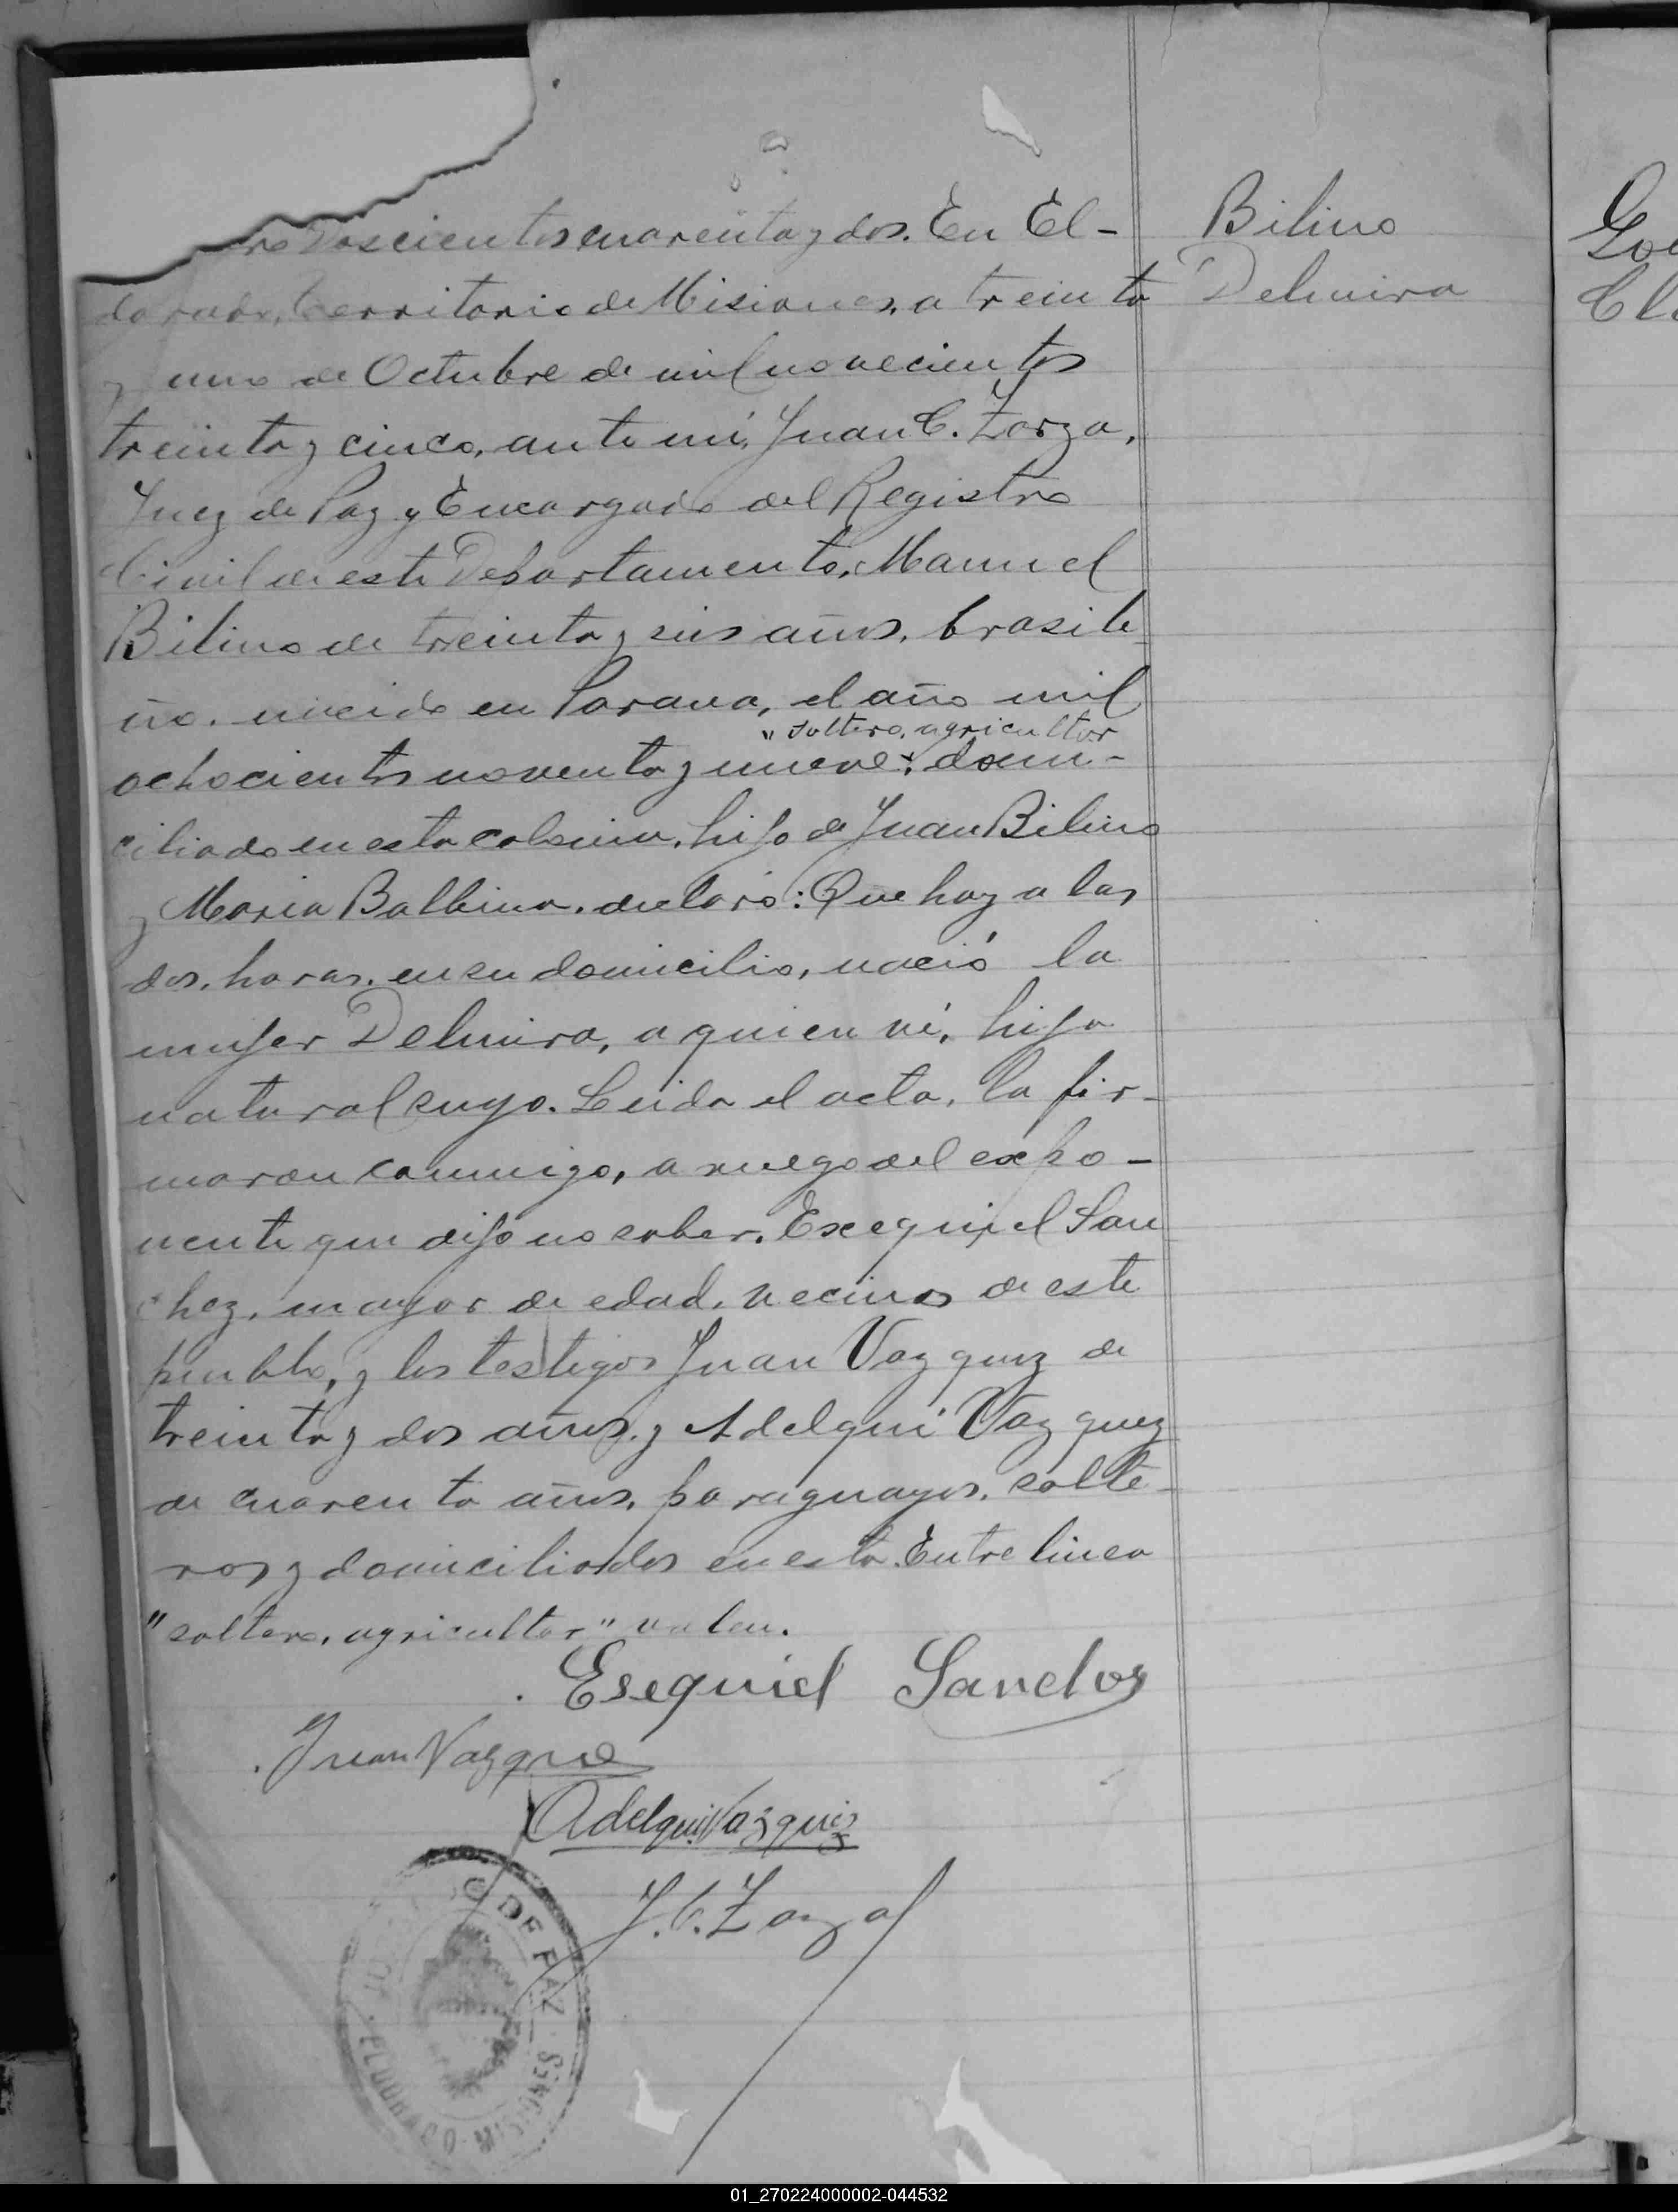 ro Doscientos cuarenta y dos. En El-
dorado, Territorio de Misiones, a treinta
y uno de Octubre de mil novecientos
treinta y cinco, ante mi, Juan C. Zorza,
Juez de Paz y Encargado del Registro
Civil de este Departamento, Manuel
Bilino de treinta y seis años, brasile-
ño, nacido en Parana, el año mil
" soltero, agricultor
ochocientos noventa y nueve, domi-
ciliado en esta colonia, hijo de Juan Bilino
y Maria Balbina, declaró: Que hoy a las
dos, horas, en su domicilio, nació la
mujer Delmira, a quien ví, hija
natural suya. Leida el acta, la fir-
maron conmigo, a ruego del expo-
nente que dijo no saber, Exequiel San
chez, mayor de edad, vecinos de este
pueblo, y los testigos Juan Vazquez de
treinta y dos años, y Adelqui Vazquez
de cuarenta años, paraguayos, solte-
ros y domiciliados en esta. Entre linea
"soltero, agricultor" valen.
Esequiel Sanchez
Juan Vazque
Adelqui Vazquez
J. C. Zorza
O DE PAZ
MISIONES
ELDORADO
Bilino
Delmira
01_270224000002-044532